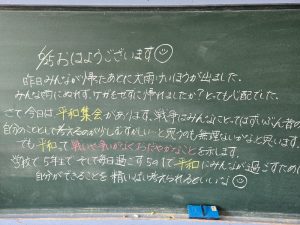 6/25 おはようございます
昨日みんなが帰ったあとに大雨けいほうが出ました。
みんな雨にぬれず、ケガもせずに帰れましたか?とても心配でした。
さて今日は平和集会があります。戦争はみんなにとってはずいぶん昔の
自分のこととして考えるのが少しむずかしい…と思うのも無理ないかなと思います。
でも平和って戦いや争いがなくおだやかなことを示します。
学校で5年生で そして毎日過ごす5の1で平和にみんなが過ごすために
自分ができることを精いっぱい考えられるといいな